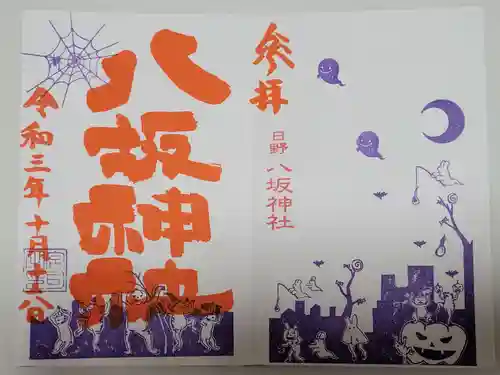 参拝
日野 八坂神社
八坂神社
令和三年十月十八日